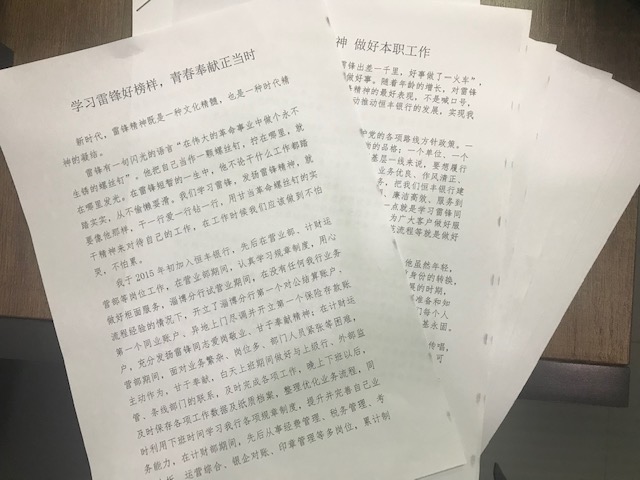 学习雷锋好榜样，青春奉献正当时
新时代，雷锋精神既是一种文化精髓，也是一种时代精
神的凝结。
雷锋有一句闪光的语言“在伟大的革命事业中做个永不
生锈的螺丝钉”。他把自己当作一颗螺丝钉，拧在哪里，就
在哪里发光。在雷锋短暂的一生中，他不论干什么工作都踏
踏实实，从不偷懒耍滑。我们学习雷锋，发扬雷锋精神，就
要像他那样，干一行爱一行钻一行，用甘当革命螺丝钉的实
干精神来对待自己的工作，在工作时候我们应该做到不怕
累，不怕累。
我于 2015 年初加入恒丰银行，先后在营业部、计财运
营部等岗位工作，在营业部期间，认真学习规章制度，用心
做好柜面服务，淄博分行试营业期间，在没有任何我行业务
流程经验的情况下，开立了淄博分行第一个对公结算账户、
第一个同业账户、异地上门尽调并开立第一个保险存款账
户，充分发扬雷锋同志爱岗敬业、甘于奉献精神；在计财运
营部期间，面对业务繁杂、岗位多、部门人员紧张等困难，
主动作为，甘于奉献，白天上班期间做好与上级行、外部监
管、条线部门的联系，及时完成各项工作，晚上下班以后，
及时保存各项工作数据及纸质档案，整理优化业务流程，同
时利用下班时间学习我行各项规章制度，提升并完善自己业
务能力，在计财部期间，先后从事经费管理、税务管理、考
运营综合、银企对账、印章管理等多岗位，累计制
神 做好本职工作
雷锋出差一千里，好事做了一火车”，
做好事。随着年龄的增长，对雷锋
精神的最好表现，不是喊口号，
动推动恒丰银行的发展，实现我
党的各项路线方针政策。一
尚的品格；一个单位、一个
基层一线来说，要想履行
业务优良、作风清正、
务，把我们恒丰银行建
、廉洁高效、服务到
一点就是学习雷锋同
为广大客户做好服
化流程等就是做好
他虽然年轻，
身份的转换，
展的时期，
准备和知
每个人
基永固，
传唱，
可